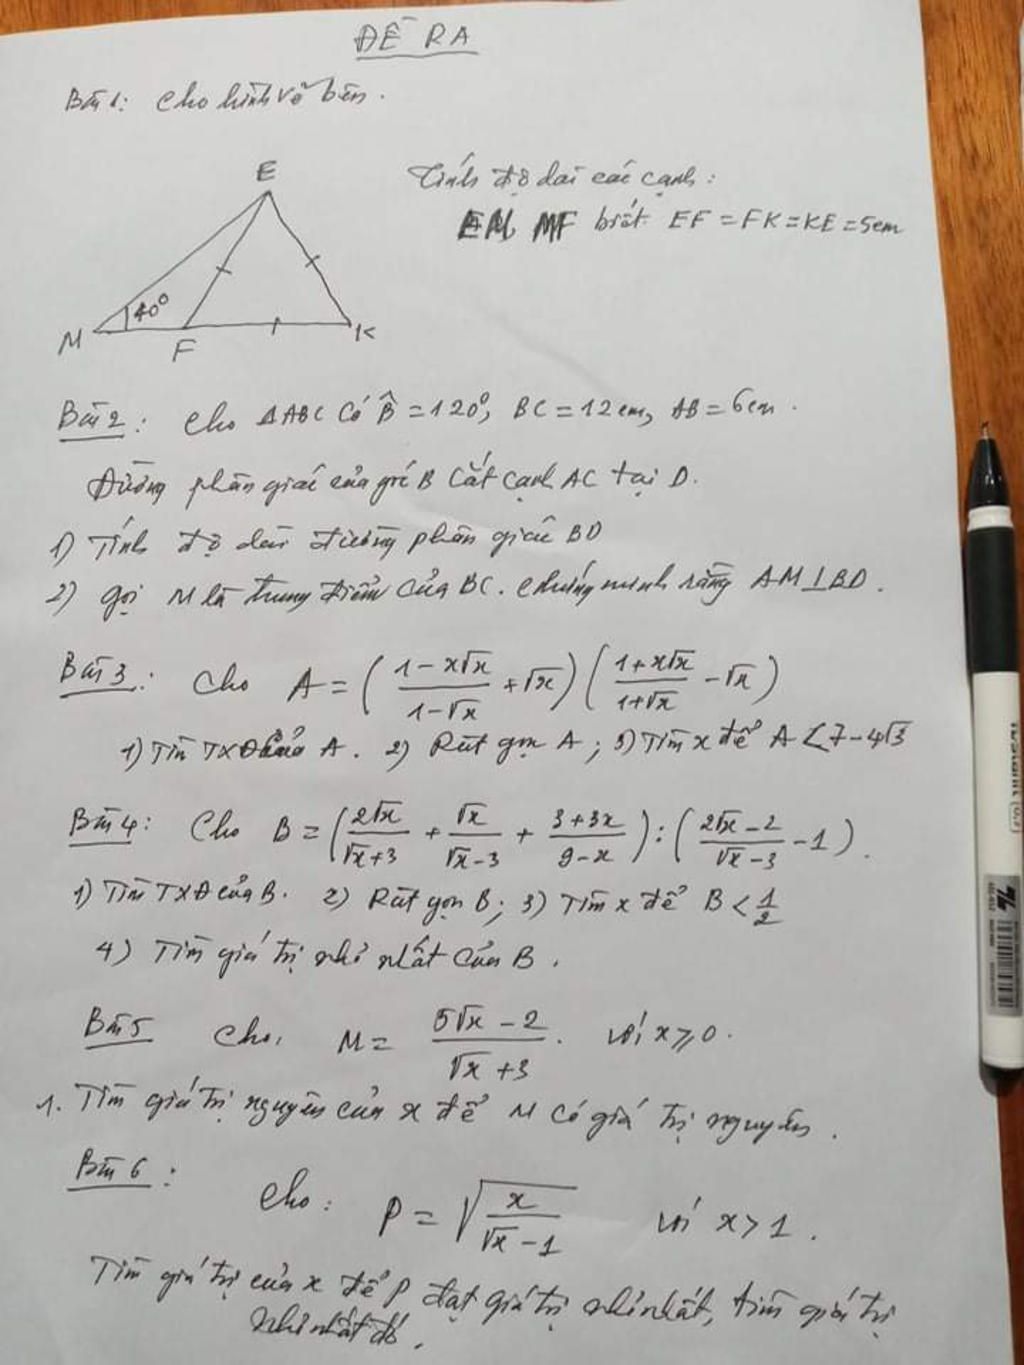 ĐỀ RA
Bài 1: Cho hình vẽ bên.
E
Tính độ dài các cạnh:
EM, MF biết EF = FK = KE = 5cm
40°
M
F
K
Bài 2: Cho ΔABC có B̂ = 120°, BC = 12cm, AB = 6cm.
Đường phân giác của góc B cắt cạnh AC tại D.
1) Tính độ dài đường phân giác BD
2) Gọi M là trung điểm của BC. Chứng minh rằng AM⊥BD.
Bài 3: Cho A = ( (1-x√x)/(1-√x) + √x ) ( (1+x√x)/(1+√x) - √x )
1) Tìm TXĐ của A. 2) Rút gọn A; 3) Tìm x để A < 7-4√3
Bài 4: Cho B = ( 2√x/(√x+3) + √x/(√x-3) + (3+3x)/(9-x) ) : ( (2√x-2)/(√x-3) - 1 ).
1) Tìm TXĐ của B. 2) Rút gọn B; 3) Tìm x để B < 1/2
4) Tìm giá trị nhỏ nhất của B.
Bài 5 Cho: M = (5√x - 2)/(√x + 3). với x ≥ 0.
1. Tìm giá trị nguyên của x để M có giá trị nguyên.
Bài 6:
Cho: P = √(x/(√x - 1)) với x > 1.
Tìm giá trị của x để P đạt giá trị nhỏ nhất, tìm giá trị
nhỏ nhất đó.